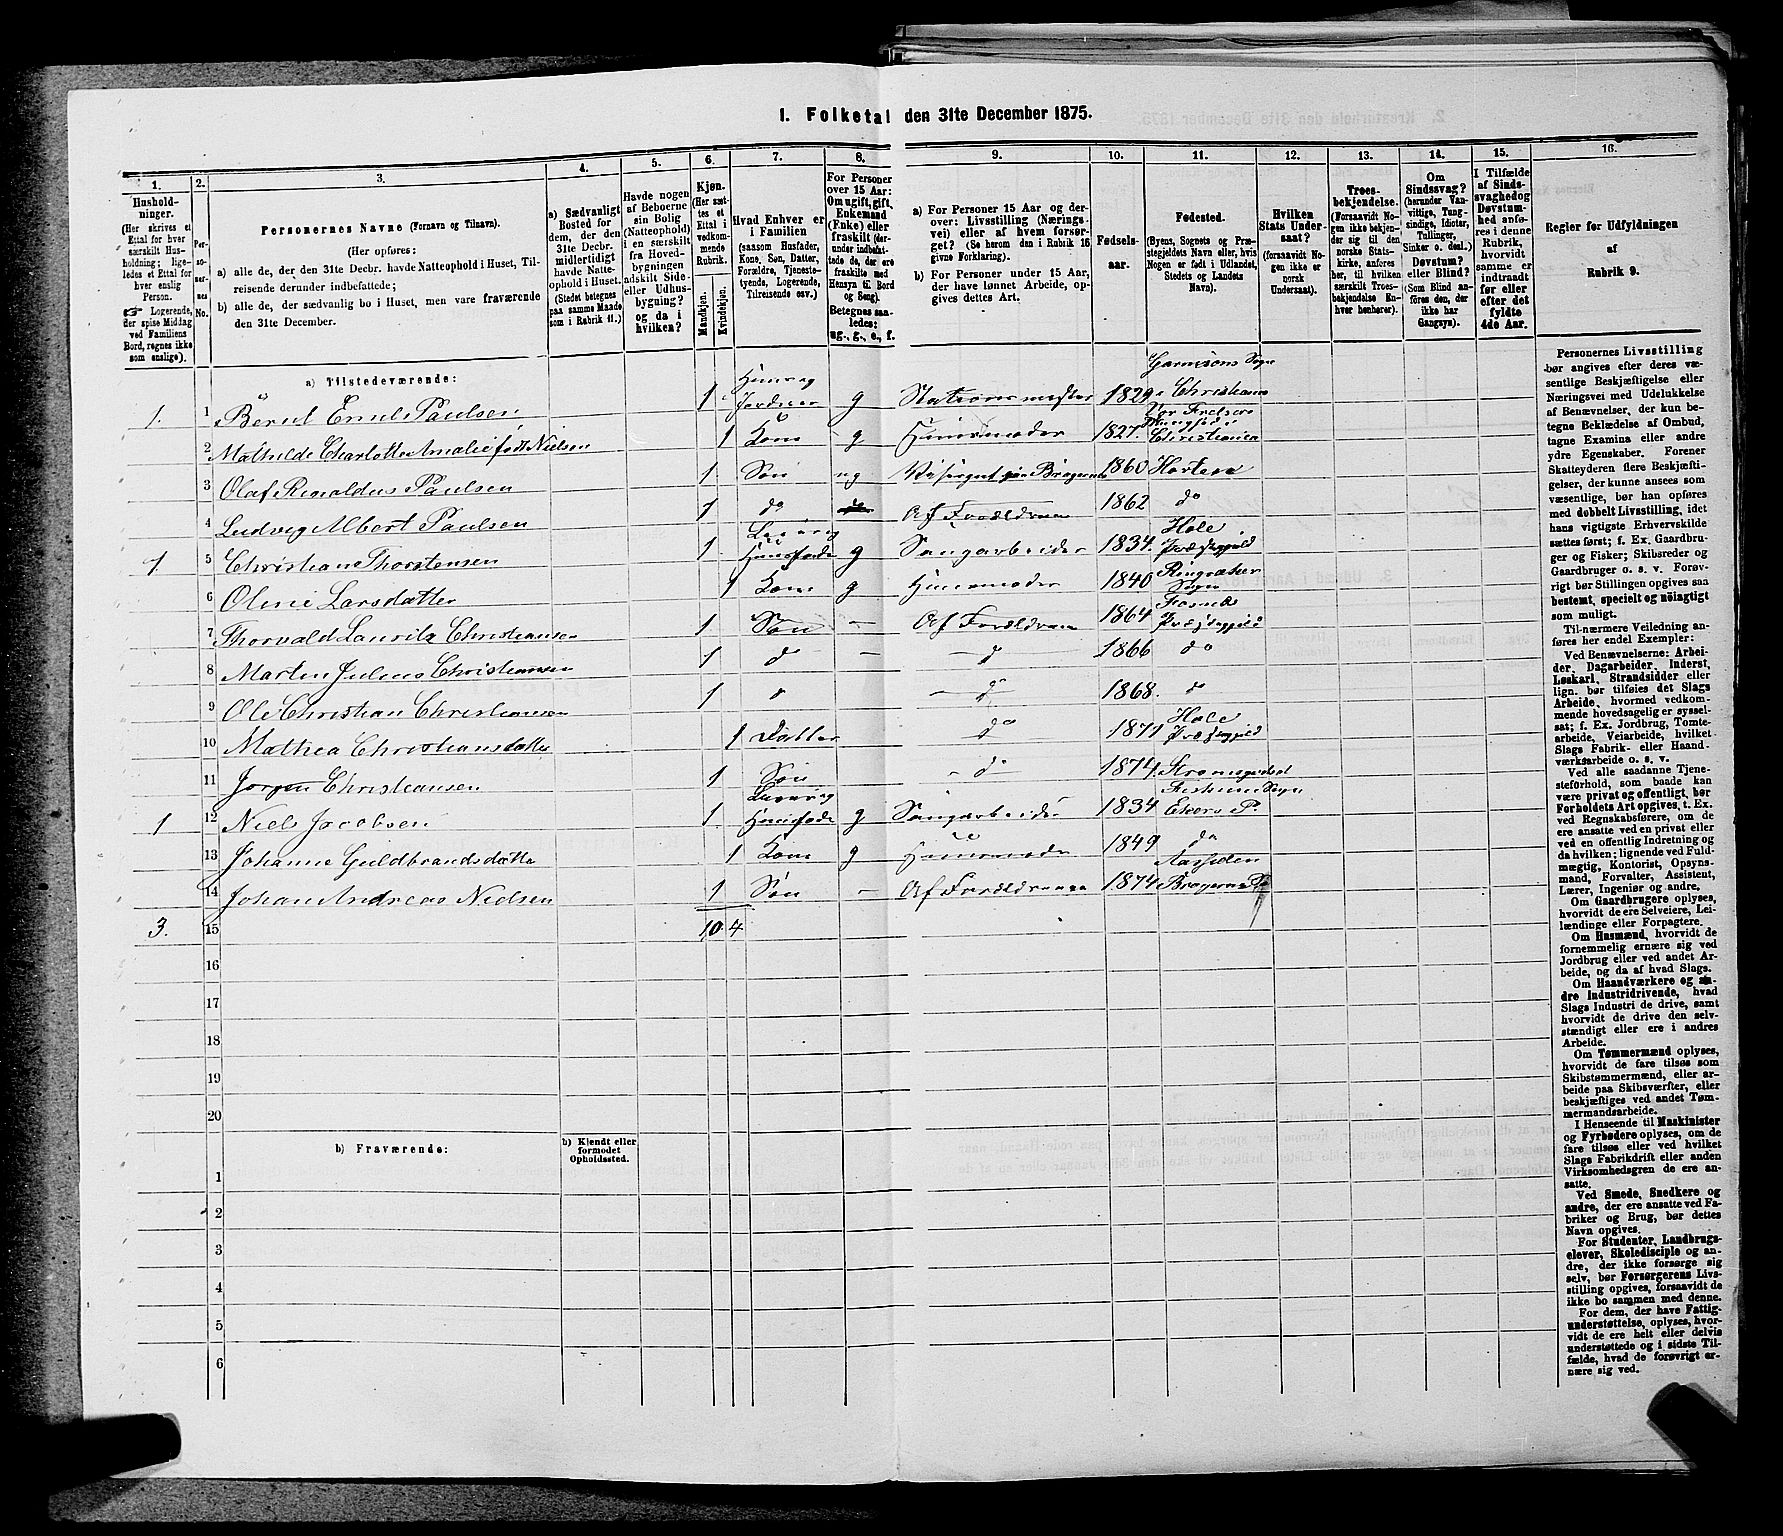 1. Folketal den 31te December 1875.
1. 2. 3. 4. 5. 6. 7. 8. 9. 10. 11. 12. 13. 14. 15. 16.
Hushold-
ninger.
(Her skrives et
Ettal for hver
særskilt Hus-
holdning; lige-
ledes et Ettal for
hver enslig
Person.
☞ Logerende,
der spise Middag
ved Familiens
Bord, regnes ikke
som enslige).
Per-
so-
ner-
nes
No.
Personernes Navne (Fornavn og Tilnavn).
(Her opføres:
a) alle de, der den 31te Decbr. havde Natteophold i Huset, Til-
reisende derunder indbefattede;
b) alle de, der sædvanlig bo i Huset, men vare fraværende
den 31te December.
a) Sædvanligt
Bosted for
dem, der den
31te Decbr.
midlertidigt
havde Natte-
ophold i Huset.
(Stedet betegnes
paa samme Maade
som i Rubrik 11.)
Havde nogen
af Beboerne
sin Bolig
(Natteophold)
i en særskilt
fra Hoved-
bygningen
adskilt Side-
eller Udhus-
bygning?
og da i
hvilken?
Kjøn.
(Her sæt-
tes et
Ettal i
vedkom-
mende
Rubrik.
Mandkjøn.
Kvindekjøn.
Hvad Enhver er
i Familien
(saasom Husfader,
Kone, Søn, Datter,
Forældre, Tjeneste-
tyende, Logerende,
Tilreisende osv.)
For Personer
over 15 Aar:
Om ugift, gift,
Enkemand
(Enke) eller
fraskilt (der-
under indbefat-
tede de, der ere
fraskilte med
Hensyn til Bord
og Seng).
Betegnes saa-
ledes:
ug., g., e., f.
a) For Personer 15 Aar og der-
over: Livsstilling (Nærings-
vei) eller af hvem forsør-
get? (Se herom den i Rubrik 16
givne Forklaring).
b) For Personer under 15 Aar,
der have lønnet Arbeide, op-
gives dettes Art.
Fødsels-
aar.
Fødested.
(Byens, Sognets og Præ-
stegjeldets Navn eller, hvis
Nogen er født i Udlandet,
Stedets og Landets
Navn).
Hvilken
Stats Under-
saat?
(forsaavidt No-
gen ikke er
norsk
Undersaat).
Troes-
bekjendelse.
(Forsaavidt No-
gen ikke bekjen-
der sig til den
norske Stats-
kirke, anføres
her, til hvilken
særskilt Troes-
bekjendelse En-
hver henhører).
Om
Sindssvag?
(herunder Van-
vittige, Tung-
sindige, Idioter,
Tullinger,
Sinker o. desl.)
Døvstum?
eller Blind?
(Som Blind an-
føres den, der
ikke har
Gangsyn).
I Tilfælde
af Sinds-
svaghed og
Døvstum-
hed anfø-
res i denne
Rubrik,
hvorvidt
samme er
indtraadt
før eller
efter det
fyldte
4de Aar.
Regler for Udfyldningen
af
Rubrik 9.
a) Tilstedeværende:
1. 1 Bernt Emil Paulsen 1 g Stationsmester 1829 Garnisons Sogn i Christiania
2 Mathilde Charlotte Amalie født Nielsen 1 Kone g Huusmoder 1827. Vor Frelsers Christiania
3 Olaf Rinaldus Paulsen 1 Søn ug 1860 Horten
4 Ludvig Albert Paulsen 1 do Af Forældrene 1862 do
1. 5 Christian Thorstensen 1. Huusfader g Saugarbeider 1834. Hole Præstegjeld
6 Oline Larsdatter 1 Kone g Huusmoder 1840 Sogn
7 Thorvald Lauritz Christiansen 1 Søn — Af Forældrene 1864 Præstegjeld
8 Martin Julius Christiansen 1 d — d 1866 do
9 Ole Christian Christiansen 1 — d 1868. do
10 Mathea Christiansdatter 1 Datter do 1871 Hole Præstegjeld
11 Jørgen Christiansen 1 Søn — do 1874 Strømsgodset
1 12 Niels Jacobsen 1. Huusfader g Saugarbeider 1834 Fiskum Sogn Ekers P.
13 Johanne Guldbrandsdatter 1 Kone g Huusmoder 1849 do
14 Johan Andreas Nielsen 1 Søn — Af Forældrene 1874 Aassiden
3. 15 10 4
16
17
18
19
20
b) Fraværende:
b) Kjendt eller
formodet
Opholdssted.
1
2
3
4
5
6
Personernes Livsstilling
bør angives efter deres væ-
sentlige Beskjæftigelse eller
Næringsvei med Udelukkelse
af Benævnelser, der kun be-
tegne Beklædelse af Ombud,
tagne Examina eller andre
ydre Egenskaber. Forener
Skatteyderen flere Beskjæfti-
gelser, der kunne ansees som
væsentlige, bør han opføres
med dobbelt Livsstilling, idet
hans vigtigste Erhvervskilde
sættes først; f. Ex. Gaardbru-
ger og Fisker; Skibsreder og
Gaardbruger o. s. v. Forøv-
rigt bør Stillingen opgives saa
bestemt, specielt og nöiagtigt
som muligt.
Til nærmere Veiledning an-
føres her endel Exempler:
Ved Benævnelserne: Arbei-
der, Dagarbeider, Inderst,
Løskarl, Strandsidder eller
lign. bør tilføies det Slags
Arbeide, hvormed vedkom-
mende hovedsagelig er syssel-
sat; f. Ex. Jordbrug, Tomte-
arbeide, Veiarbeide, hvilket
Slags Fabrik- eller Haand-
værksarbeide o. s. v.
Ved alle saadanne Tjene-
steforhold, som baade kan
være privat og offentligt, bør
Forholdets Art opgives, t. Ex.
ved Regnskabsførere, om de
ere ansatte ved en privat eller
en offentlig Indretning og
da hvilken; lignende ved Fuld-
mægtig, Kontorist, Opsyns-
mand, Forvalter, Assistent,
Lærer, Ingeniør og andre.
Om Gaardbrugere oplyses,
hvorvidt de ere Selveiere, Lei-
lændinge eller Forpagtere.
Om Husmænd, hvorvidt de
fornemmelig ernære sig ved
Jordbrug eller ved andet Ar-
beide, og da af hvad Slags.
Om Haandværkere og an-
dre Industridrivende, hvad
Slags Industri de drive, samt
hvorvidt de drive den selv-
stændigt eller ere i andres
Arbeide.
Om Tømmermænd oplyses,
hvorvidt de fare tilsøs som
Skibstømmermænd, eller ar-
beide paa Skibsværfter, eller
beskjæftiges ved andet Tøm-
mermandsarbeide.
I Henseende til Maskinister
og Fyrbødere oplyses, om de
fare tilsøs eller ved hvilket
Slags Fabrikdrift eller anden
Virksomhedsgren de ere an-
satte.
Ved Smede, Snedkere og
andre, der ere ansatte ved Fa-
briker og Brug, bør dettes
Navn opgives.
For Studenter, Landbrugs-
elever, Skoledisciple og an-
dre, der ikke forsørge sig
selv, bør Forsørgerens Livs-
stilling opgives, forsaavidt de
ikke bo sammen med denne.
For dem, der have Fattig-
understøttelse, oplyses, hvor-
vidt de ere helt eller delvis
understøttede og i sidste Til-
fælde, hvad de forøvrigt er-
nære sig ved.